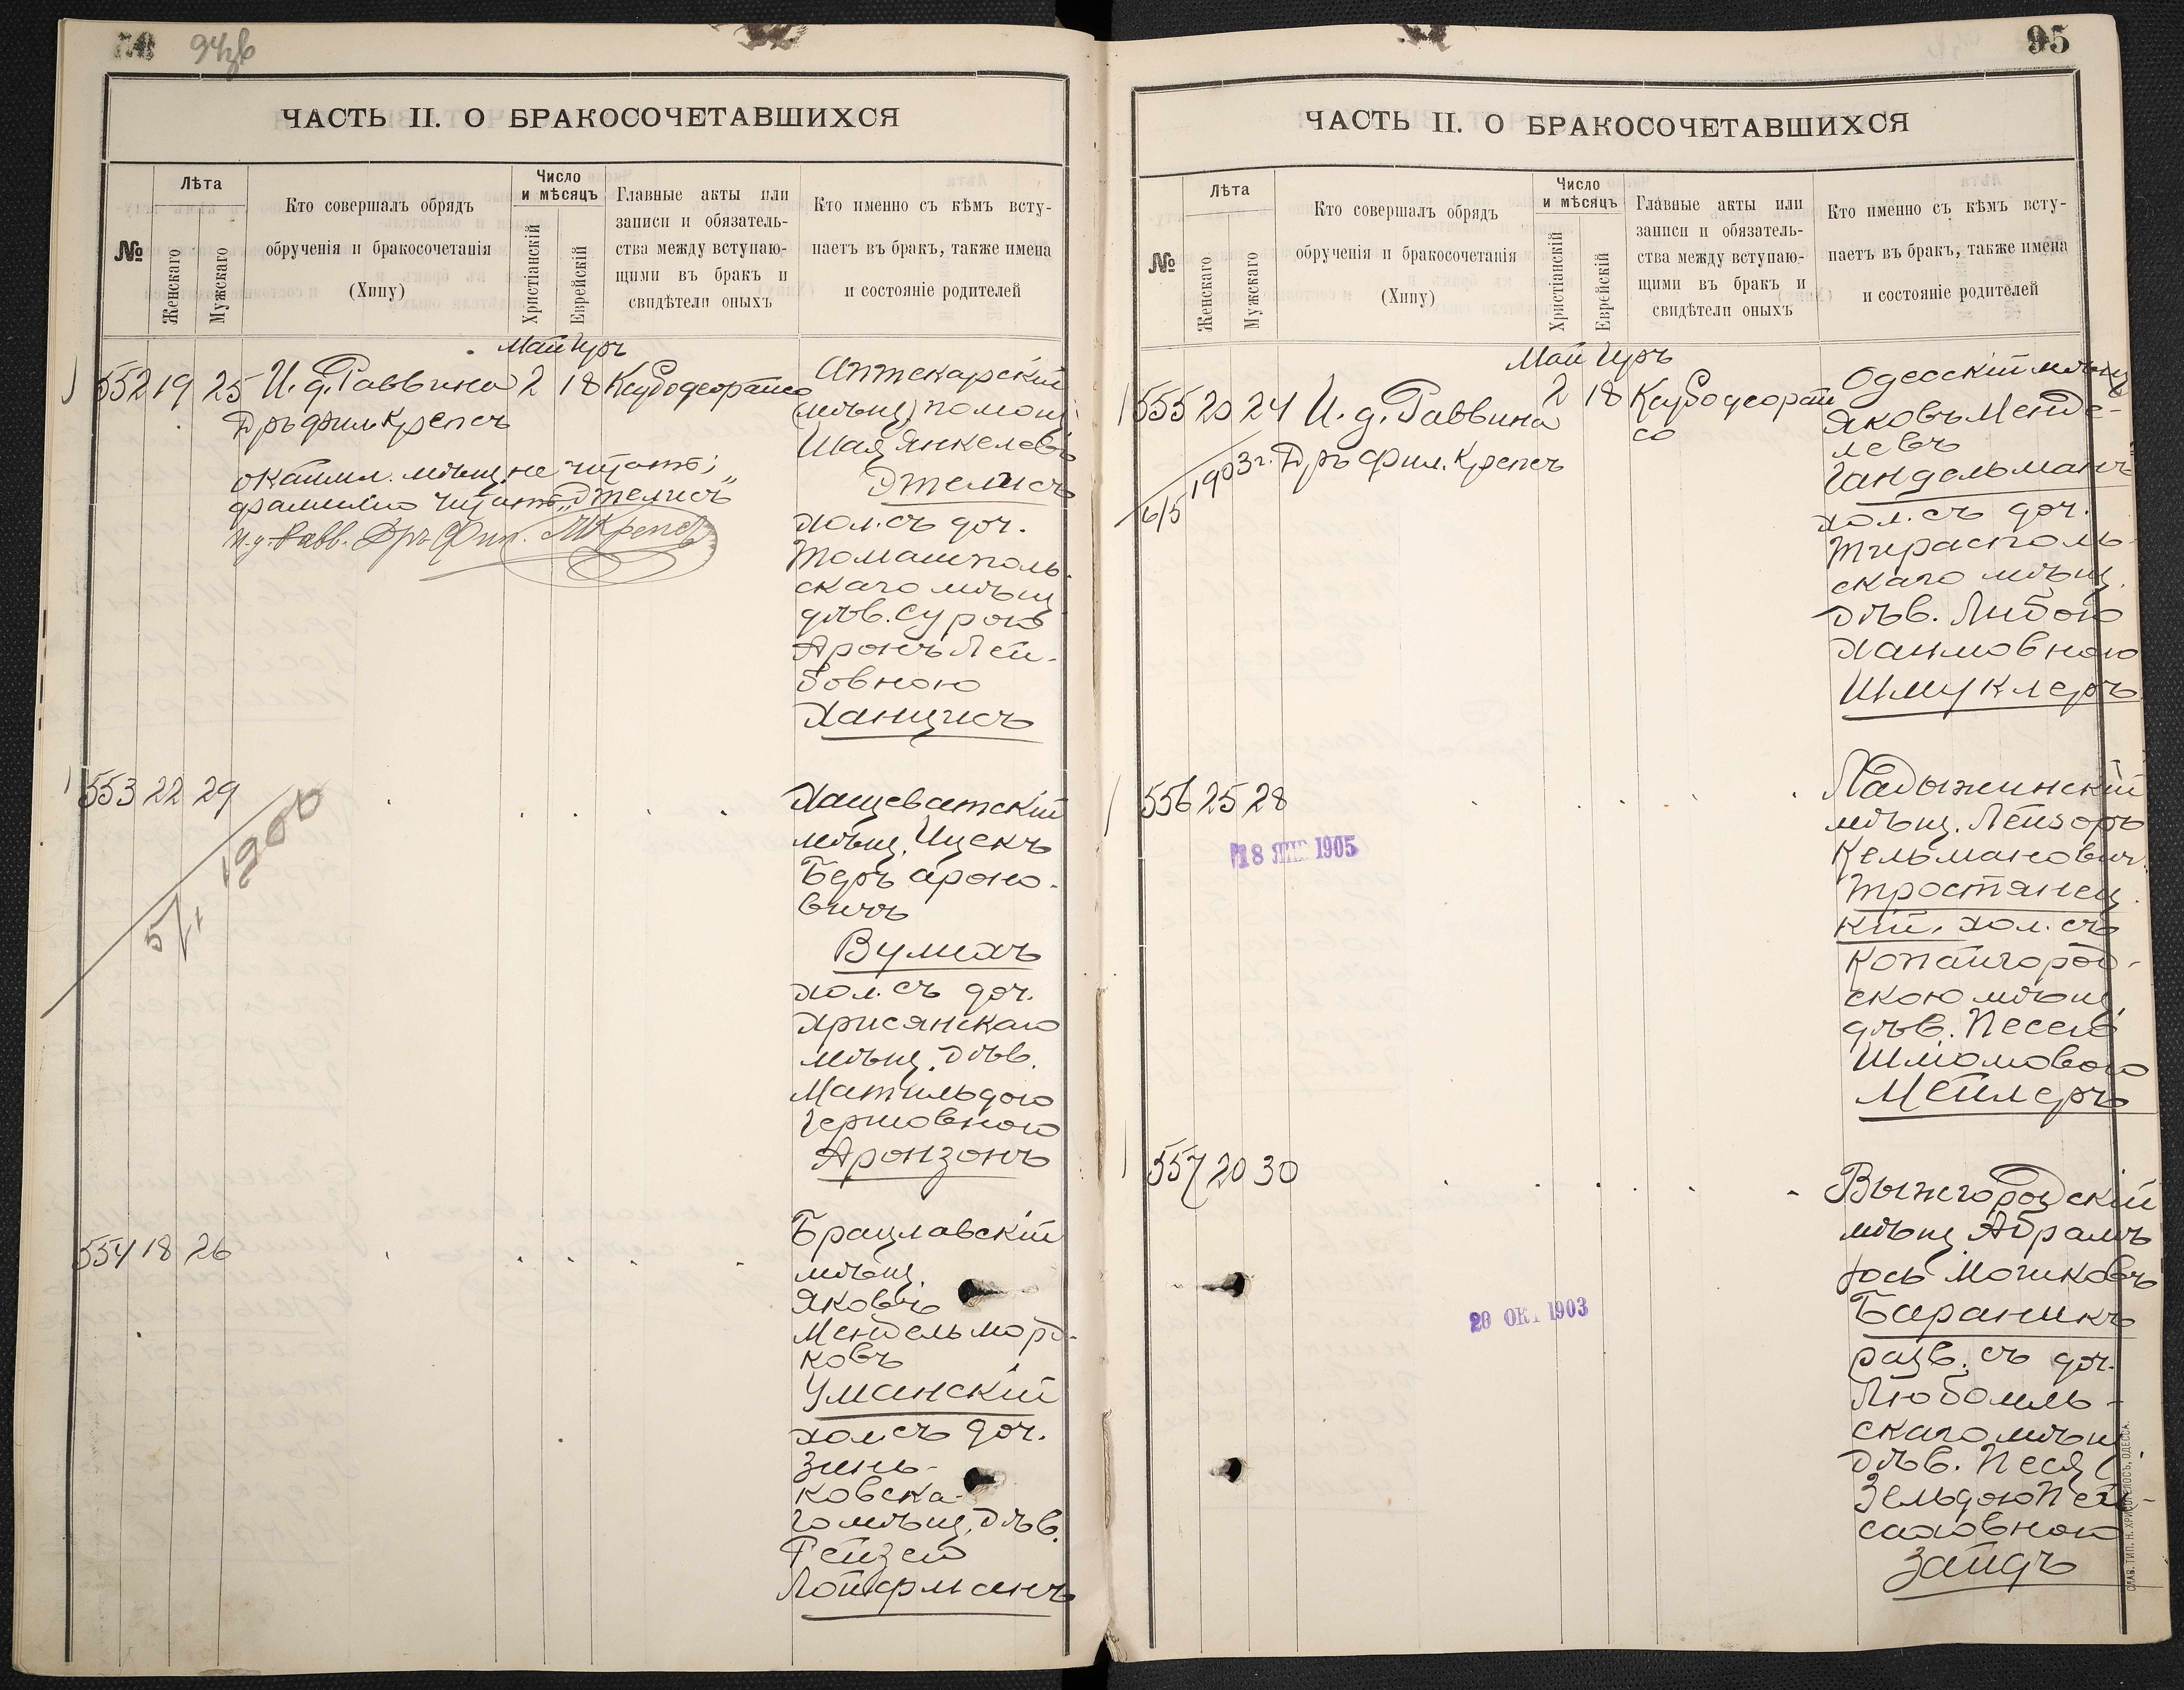 94 об
ЧАСТЬ II. О БРАКОСОЧЕТАВШИХСЯ
№
Лѣта
Женскаго
Мужскаго
Кто совершалъ обрядъ
обрученія и бракосочетанія
(Хипу)
Число
и мѣсяцъ
Христіанскій
Еврейскій
Главные акты или
записи и обязатель-
ства между вступаю-
щими въ бракъ и
свидѣтели оныхъ
Кто именно съ кѣмъ всту-
паетъ въ бракъ, также имена
и состояніе родителей
Май Іуръ
552 19 25 И. д. Раввина 2 18
Дръ фил. Крепсъ
мѣщ. не читать;
фамилію читать „Этелисъ"
И. д. Равв. Дръ Фил. Крепсъ
Аптекарскій
(мѣщ) помощ.
Шая Янкелевъ
Этелисъ
хол. съ доч.
Томашполь-
скаго мѣщ.
дѣв. Сурою
Аронъ Лей-
бовною
Ханцисъ
553 22 29
5/1 1900
Хащеватскій
мѣщ. Ицекъ
Беръ Ароно-
вичъ
Вулихъ
хол. съ доч.
мѣщ. дѣв.
Матильдою
Гершовною
Аронзонъ
554 18 26
Брацлавскій
мѣщ.
Яковъ
Мендель Морд-
ковъ
Уманскій
хол. съ доч.
Зинь-
ковска-
го мѣщ. дѣв.
Рейзею
Лойфманъ
95
ЧАСТЬ II. О БРАКОСОЧЕТАВШИХСЯ
№
Лѣта
Женскаго
Мужскаго
Кто совершалъ обрядъ
обрученія и бракосочетанія
(Хипу)
Число
и мѣсяцъ
Христіанскій
Еврейскій
Главные акты или
записи и обязатель-
ства между вступаю-
щими въ бракъ и
свидѣтели оныхъ
Кто именно съ кѣмъ всту-
паетъ въ бракъ, также имена
и состояніе родителей
Май Іуръ
555 20 24 И. д. Раввина 2 18
Дръ Фил. Крепсъ
6/5 1903 г.
Одесскій мѣщ
Яковъ Менде-
левъ
Гандельманъ
хол. съ доч.
Тирасполь-
скаго мѣщ.
дѣв. Либою
Хаимовною
Шмуклеръ
556 25 28
18 ЯНВ 1905
Ладыжинскій
мѣщ. Лейзоръ
Кельманович.
Тростянец
кій, хол. съ
Копайгород-
скою мѣщ.
дѣв. Песею
Шліомовою
Мейлеръ
557 20 30
20 ОКТ 1903
Вышгородскій
мѣщ Абрамъ
Іось Мошковъ
Бараникъ
разв. съ доч.
Любомль-
скаго мѣщ
дѣв. Песя
Зельдою Пей-
саховною
Зайдъ
СЛАВ. ТИП. Н. ХРИСОГЕЛОСЪ, ОДЕССА.